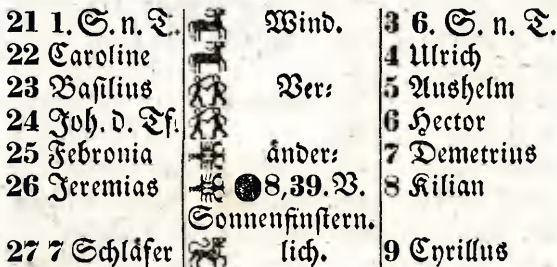 21 1. S. n. T. Wind. 3 6. S. n. T.
22 Caroline 4 Ulrich
23 Basilius Ver: 5 Aushelm
24 Joh. d. Tf. 6 Hector
25 Febronia änder: 7 Demetrius
26 Jeremias 8,39. V. 8 Kilian
Sonnenfinstern.
27 7 Schläfer lich. 9 Cyrillus